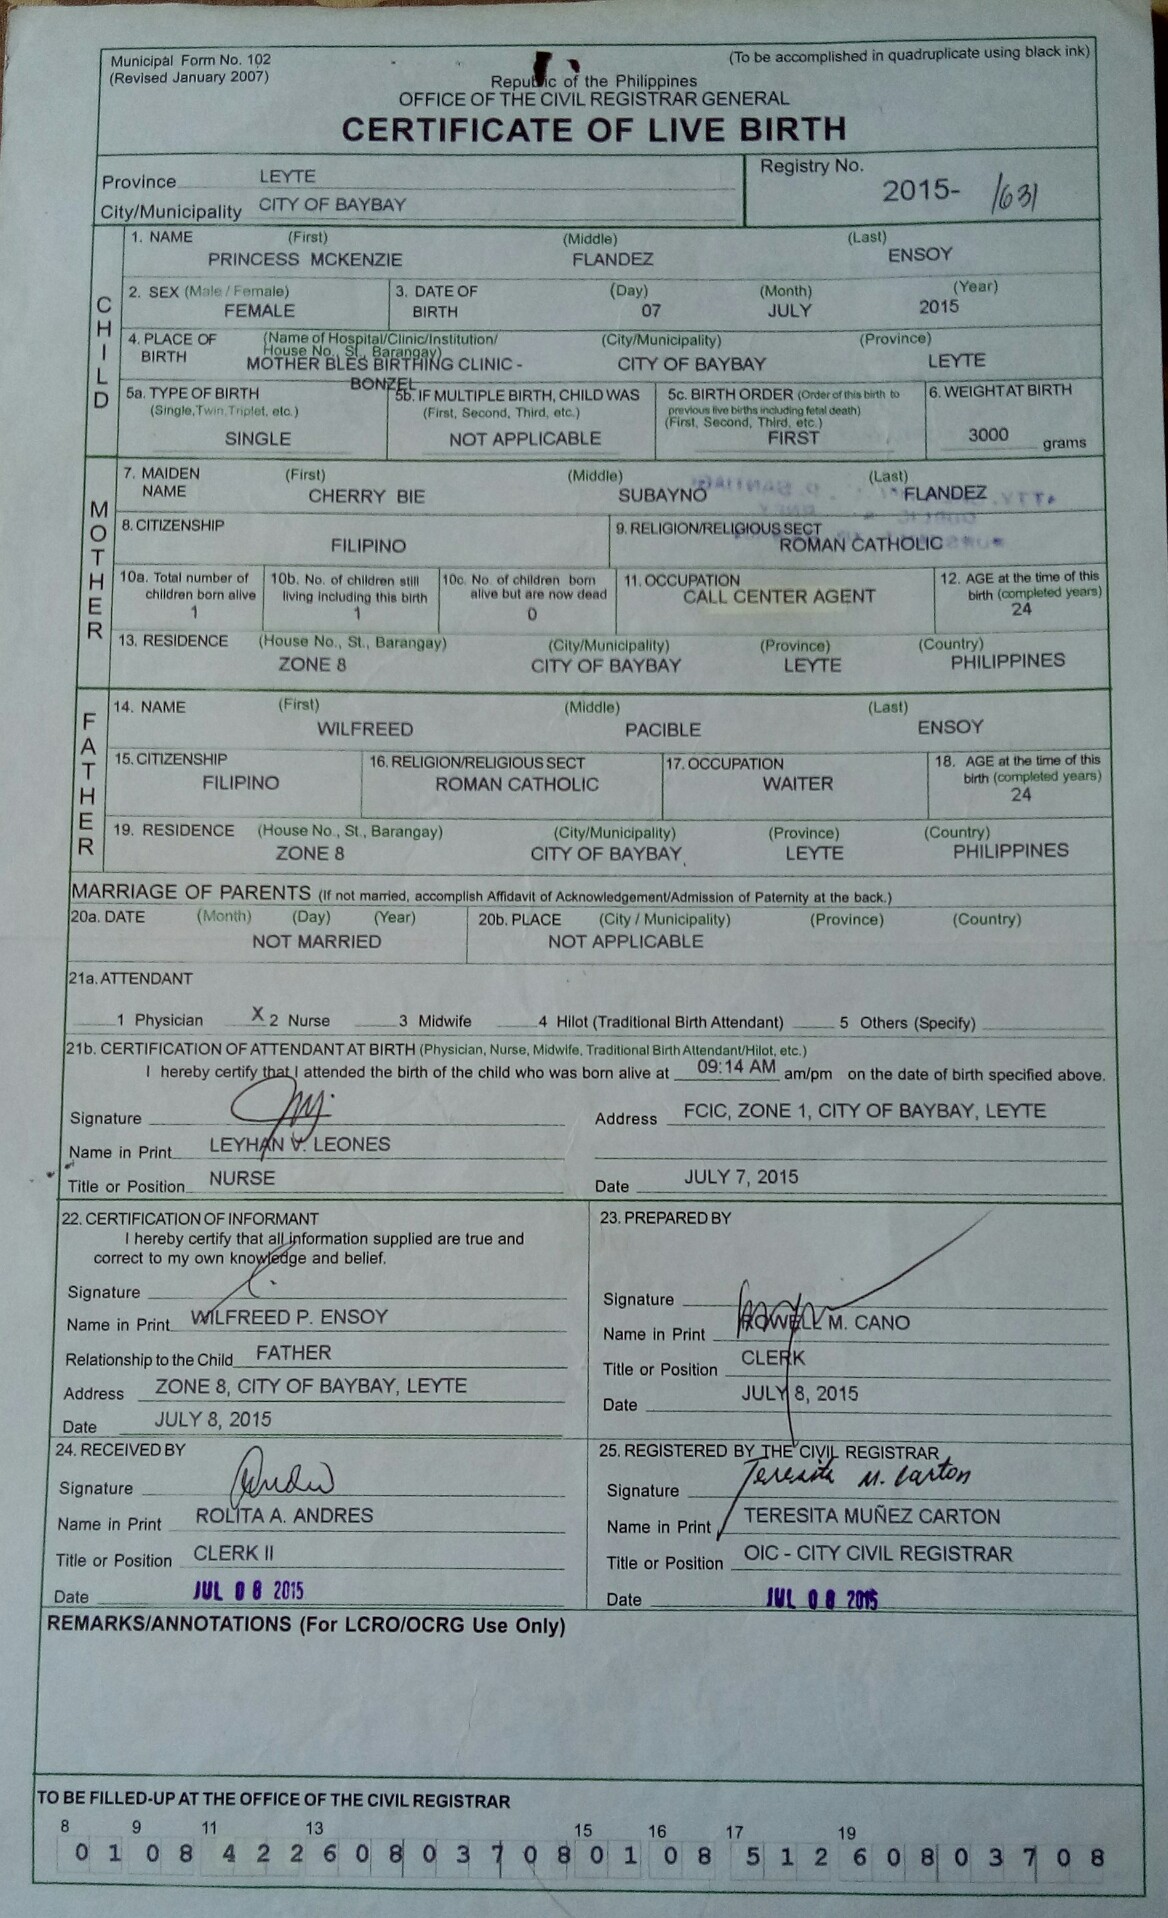 Municipal Form No. 102 (To be accomplished in quadruplicate using black ink)
(Revised January 2007)
Republic of the Philippines
OFFICE OF THE CIVIL REGISTRAR GENERAL
CERTIFICATE OF LIVE BIRTH
Province LEYTE
City/Municipality CITY OF BAYBAY
Registry No.
2015- 1631
CHILD
1. NAME (First) (Middle) (Last)
PRINCESS MCKENZIE FLANDEZ ENSOY
2. SEX (Male / Female) 3. DATE OF BIRTH (Day) (Month) (Year)
FEMALE 07 JULY 2015
4. PLACE OF BIRTH (Name of Hospital/Clinic/Institution/ House No., St., Barangay) (City/Municipality) (Province)
MOTHER BLES BIRTHING CLINIC - BONZEL CITY OF BAYBAY LEYTE
5a. TYPE OF BIRTH (Single, Twin, Triplet, etc.)
SINGLE
5b. IF MULTIPLE BIRTH, CHILD WAS (First, Second, Third, etc.)
NOT APPLICABLE
5c. BIRTH ORDER (Order of this birth to previous live births including fetal death) (First, Second, Third, etc.)
FIRST
6. WEIGHT AT BIRTH
3000 grams
MOTHER
7. MAIDEN NAME (First) (Middle) (Last)
CHERRY BIE SUBAYNO FLANDEZ
8. CITIZENSHIP
FILIPINO
9. RELIGION/RELIGIOUS SECT
ROMAN CATHOLIC
10a. Total number of children born alive
1
10b. No. of children still living including this birth
1
10c. No. of children born alive but are now dead
0
11. OCCUPATION
CALL CENTER AGENT
12. AGE at the time of this birth (completed years)
24
13. RESIDENCE (House No., St., Barangay) (City/Municipality) (Province) (Country)
ZONE 8 CITY OF BAYBAY LEYTE PHILIPPINES
FATHER
14. NAME (First) (Middle) (Last)
WILFREED PACIBLE ENSOY
15. CITIZENSHIP
FILIPINO
16. RELIGION/RELIGIOUS SECT
ROMAN CATHOLIC
17. OCCUPATION
WAITER
18. AGE at the time of this birth (completed years)
24
19. RESIDENCE (House No., St., Barangay) (City/Municipality) (Province) (Country)
ZONE 8 CITY OF BAYBAY LEYTE PHILIPPINES
MARRIAGE OF PARENTS (If not married, accomplish Affidavit of Acknowledgement/Admission of Paternity at the back.)
20a. DATE (Month) (Day) (Year)
NOT MARRIED
20b. PLACE (City / Municipality) (Province) (Country)
NOT APPLICABLE
21a. ATTENDANT
1 Physician X 2 Nurse 3 Midwife 4 Hilot (Traditional Birth Attendant) 5 Others (Specify)
21b. CERTIFICATION OF ATTENDANT AT BIRTH (Physician, Nurse, Midwife, Traditional Birth Attendant/Hilot, etc.)
I hereby certify that I attended the birth of the child who was born alive at 09:14 AM am/pm on the date of birth specified above.
Signature
Name in Print LEYHAN V. LEONES
Title or Position NURSE
Address FCIC, ZONE 1, CITY OF BAYBAY, LEYTE
Date JULY 7, 2015
22. CERTIFICATION OF INFORMANT
I hereby certify that all information supplied are true and
correct to my own knowledge and belief.
Signature
Name in Print WILFREED P. ENSOY
Relationship to the Child FATHER
Address ZONE 8, CITY OF BAYBAY, LEYTE
Date JULY 8, 2015
23. PREPARED BY
Signature
Name in Print ROWELL M. CANO
Title or Position CLERK
Date JULY 8, 2015
24. RECEIVED BY
Signature
Name in Print ROLITA A. ANDRES
Title or Position CLERK II
Date JUL 08 2015
25. REGISTERED BY THE CIVIL REGISTRAR
Signature Teresita M. Carton
Name in Print TERESITA MUÑEZ CARTON
Title or Position OIC - CITY CIVIL REGISTRAR
Date JUL 08 2015
REMARKS/ANNOTATIONS (For LCRO/OCRG Use Only)
TO BE FILLED-UP AT THE OFFICE OF THE CIVIL REGISTRAR
8 9 11 13 15 16 17 19
0 1 0 8 4 2 2 6 0 8 0 3 7 0 8 0 1 0 8 5 1 2 6 0 8 0 3 7 0 8